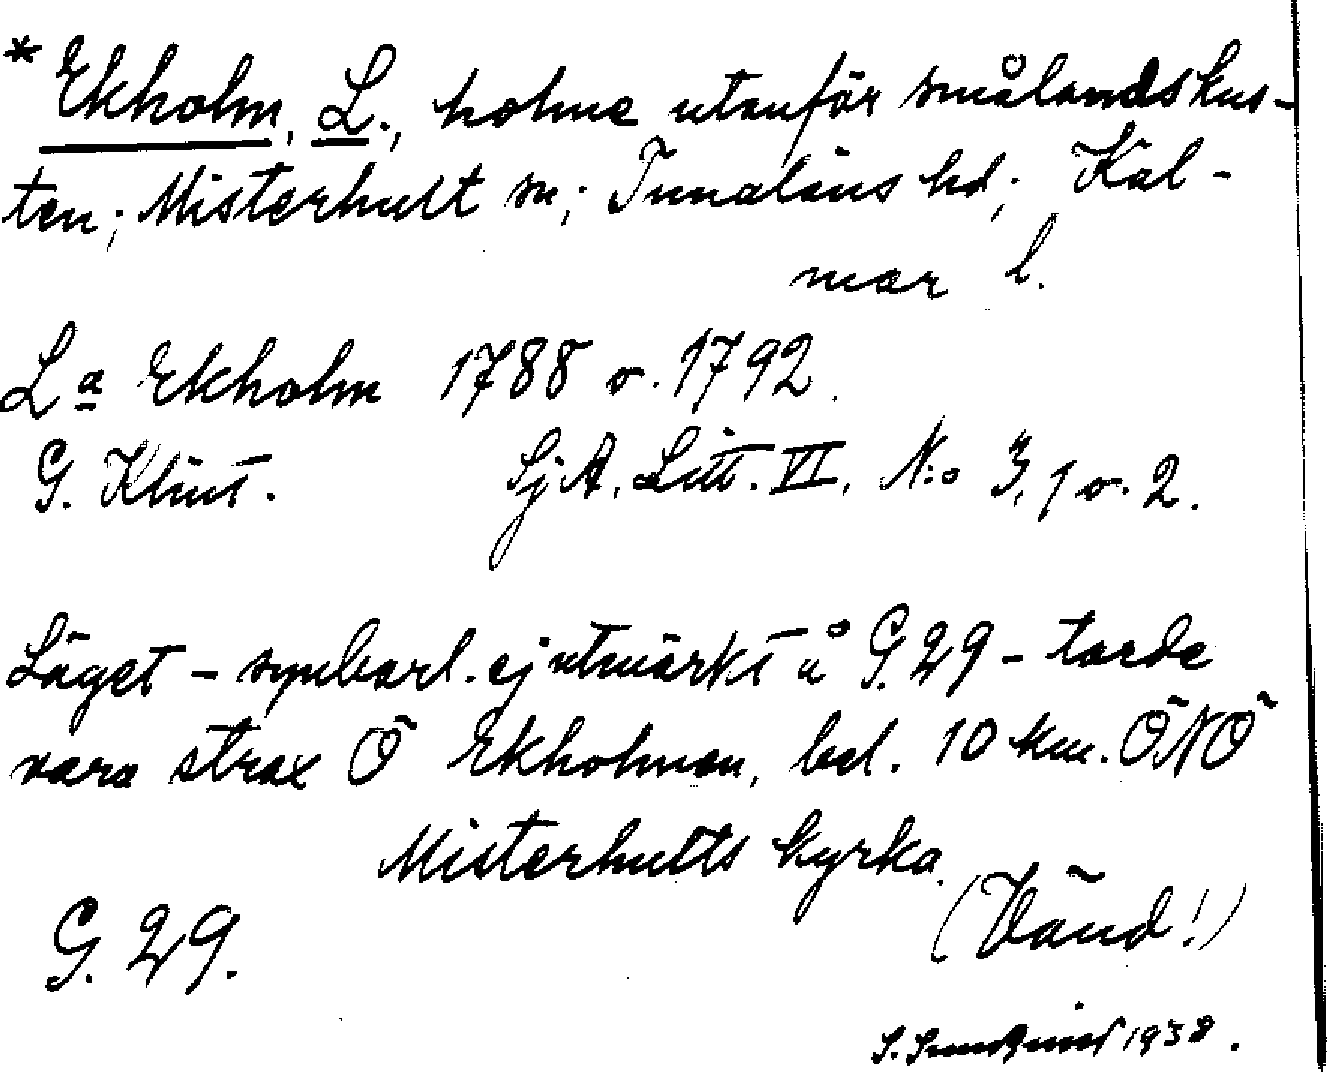 * Ekholm, L., holme utanför smålandskus-
ten; Misterhult sn; Tunaläns hd; Kal-
mar l.
La Ekholm 1788 o. 1792.
G. Klint. SjA. Litt. VI, N:o 3, 1 o. 2.
Läget - synbarl. ej utmärkt å G. 29 - torde
vara strax Ö Ekholmen, bel. 10 km. ÖNÖ
Misterhults kyrka.
(Vänd!)
G. 29.
S. 1938.